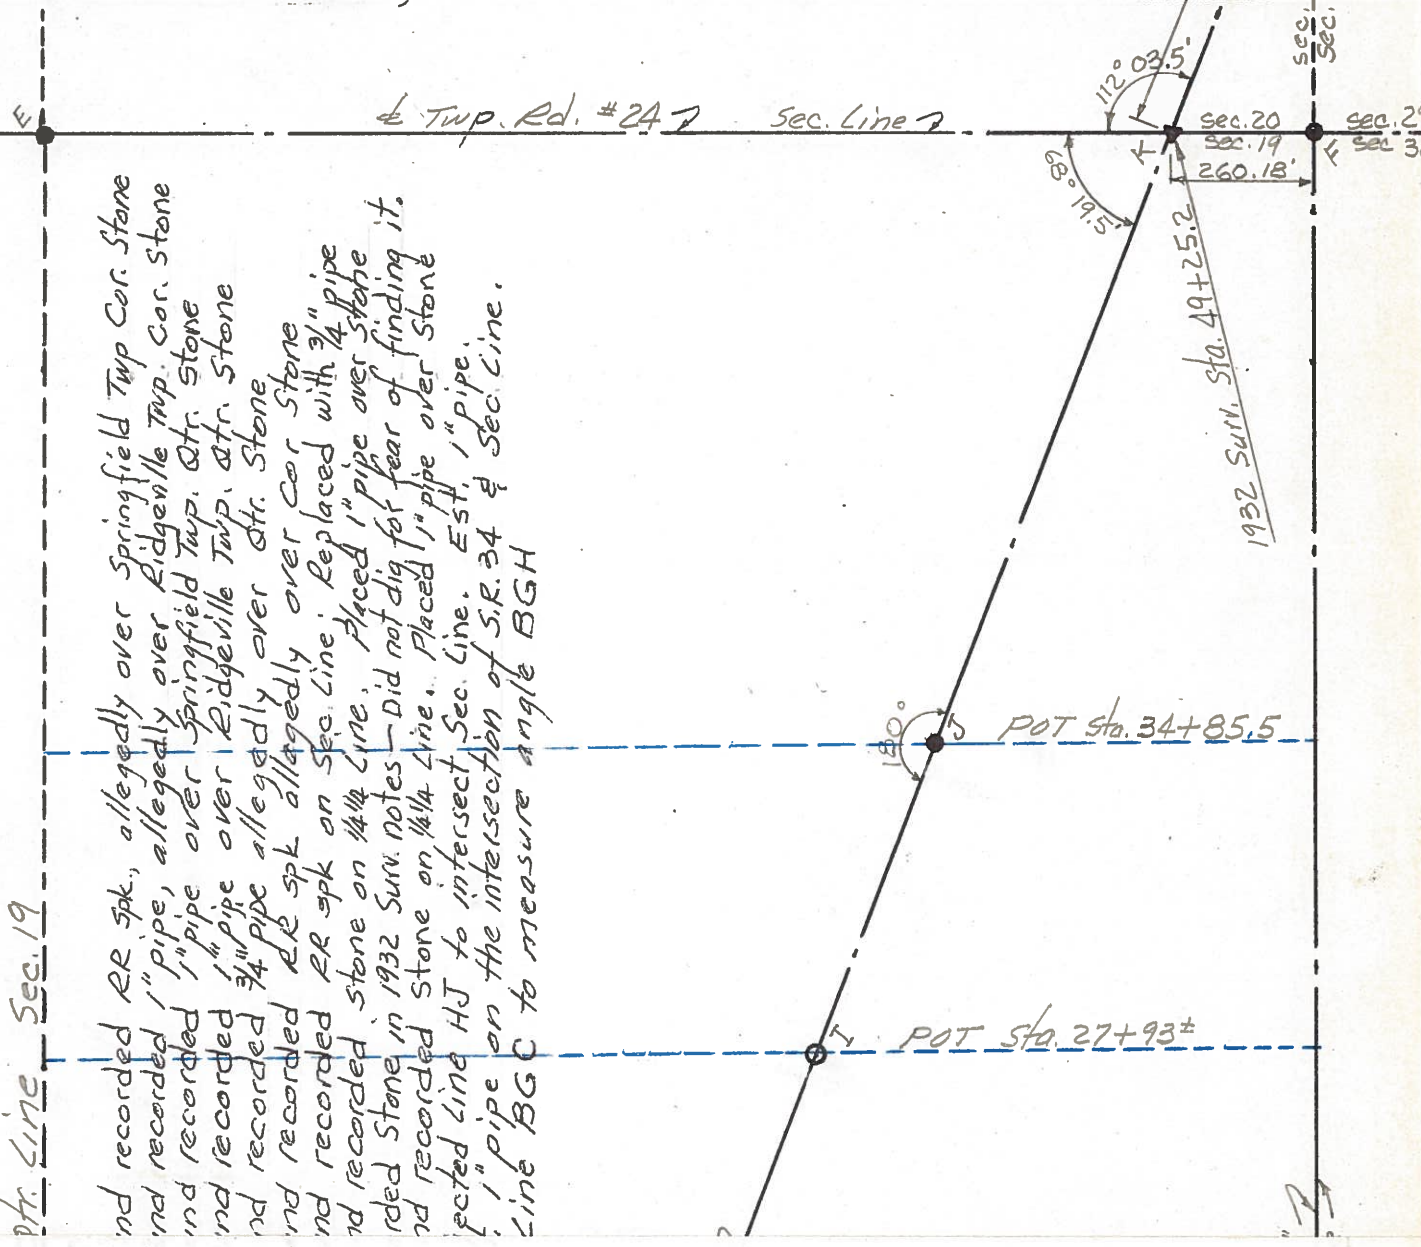 E
₵ Twp. Rd. #24
Sec. Line
112° 03.5'
sec.
sec.
sec. 20
sec. 19
K
F
260.18'
68° 19.5'
1932 Surv. Sta. 49+25.2
nd recorded RR spk., allegedly over Springfield Twp Cor. Stone
nd recorded 1" pipe, allegedly over Ridgeville Twp. Cor. Stone
nd recorded 1" pipe over Springfield Twp. Qtr. Stone
nd recorded 1" pipe over Ridgeville Twp. Qtr. Stone
nd recorded 3/4" pipe allegedly over Qtr. Stone
nd recorded RR spk allegedly over Cor Stone
nd recorded RR spk on Sec. Line. Replaced with 3/4" pipe
nd recorded stone on 1/4 1/4 Line. Placed 1" pipe over Stone
rded Stone in 1932 Surv. notes — Did not dig for fear of finding it.
nd recorded Stone on 1/4 1/4 Line. Placed 1" pipe over Stone
ected Line HJ to intersect Sec. Line. Est. 1" pipe.
1" pipe on the intersection of S.R. 34 & Sec. Line.
Line BGC to measure angle BGH
180°
J
POT Sta. 34+85.5
I
POT Sta. 27+93±
Qtr. Line Sec. 19